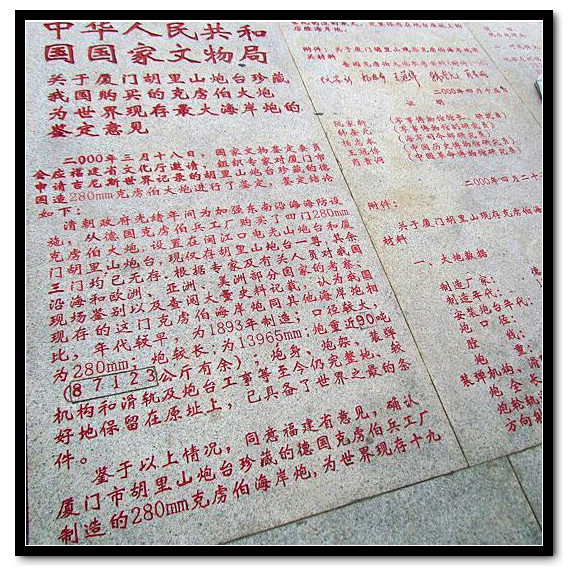 中华人民共和
国国家文物局
关于厦门胡里山炮台珍藏
我国购买的克虏伯大炮
为世界现存最大海岸炮的
鉴定意见
二000年三月十八日，国家文物鉴定委员
会应福建省文化厅邀请，组织专家对厦门市
申请吉尼斯世界记录的胡里山炮台珍藏的德
国造280mm克虏伯大炮进行了鉴定，鉴定结论
如下：
清朝政府光绪年间为加强东南沿海海防设
施，从德国克虏伯兵工厂购买了四门280mm
克虏伯大炮，设置在闽江口电光山炮台和厦
门胡里山炮台，现仅存胡里山炮台一尊，其余
三门均已无存。根据专家及有关人员对我国
沿海和欧洲、亚洲、美洲部分国家的考察、
现场鉴别以及查阅大量史料记载，认为我国
现存的这门克虏伯海岸炮同其他海岸炮相
比，年代较早，为1893年制造；口径较大，
为280mm；炮较长，为13965mm；炮重近90吨
（87123公斤有余）；炮身、炮架、装弹
机构和滑轨及炮台工事等至今仍完整地、较
好地保留在原址上，已具备了世界之最的条
件。
鉴于以上情况，同意福建省意见，确认
厦门市胡里山炮台珍藏的德国克虏伯兵工厂
制造的280mm克虏伯海岸炮，为世界现存十九
附件：关于厦门胡里山现存克虏伯海岸炮有
关材料
二000年四月十五日
证 明
阮家新 （军事博物馆馆长、研究员）
韩春元 （军事博物馆研究员）
杨志本 （海军司令部研究员）
王冠倬 （中国历史博物馆研究员）
肖贵洞 （中国革命博物馆研究员）
二000年四月二十
附件：
关于厦门胡里山现存克虏伯海
材料
一、火炮数据
制造厂家：德
制造年代：1
安装炮台年代：
炮口径：
膛线：
炮重：
装弹机构、滑
炮全长
炮轮轨
方向射